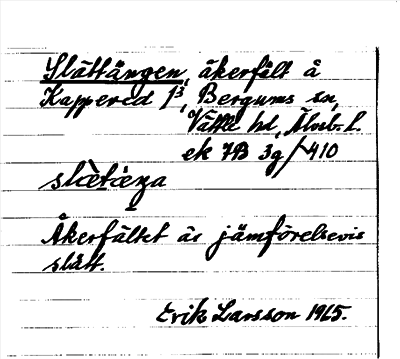 Slättängen, åkerfält å
Kappered 1³, Bergums sn,
Vättle hd, Älvsb. l.
ek 7B 3g/410
slæ̀tæŋa
Åkerfältet är jämförelsevis
slätt.
Erik Larsson 1965.